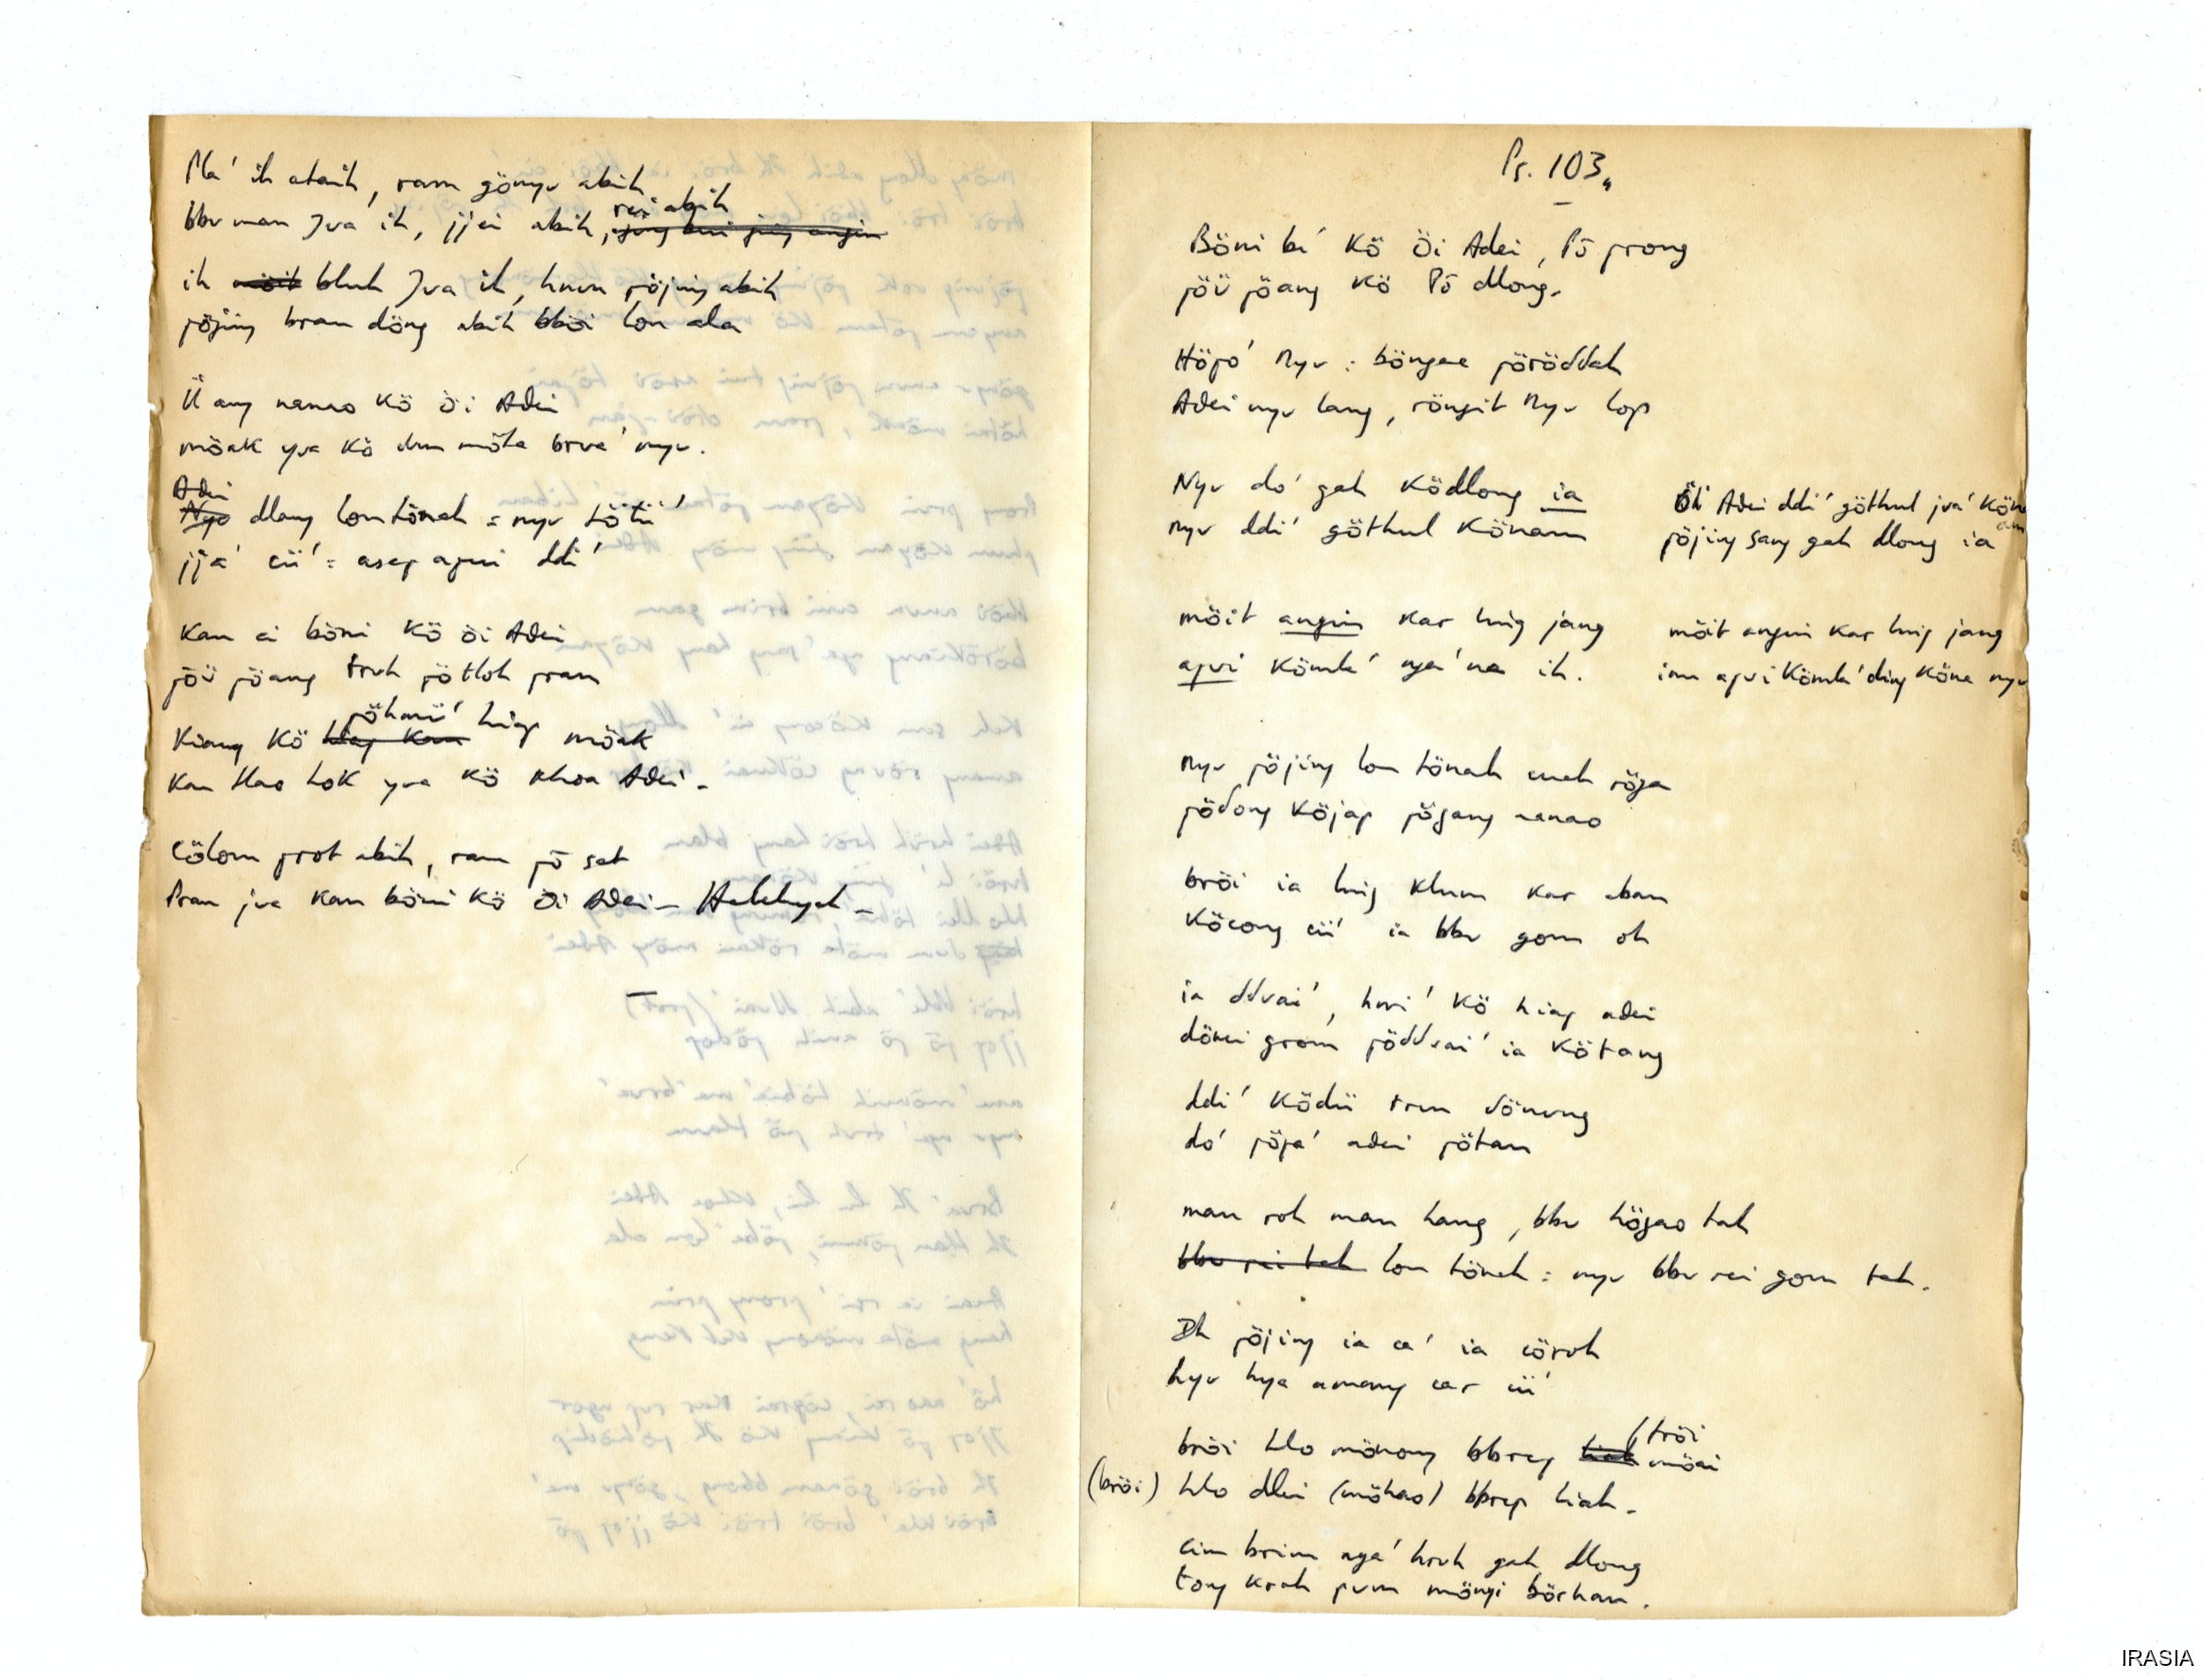 Ma' ih ataih, ram gönyu abih
bbu man Jua ih, jjei abih, rei abih
ih bluh Jua ih, hnun pöjing abih
pöjing bran döng abih bböi lon ala
Ü ang nanao kö Öi Adei
möak yua kö dum möta brua' nyu.
Adei
Nyu dlang lon tönah = nyu tötü'
jjä' cü' = asep apui ddi'
Kau ci böni kö Öi Adei
pöü pöang truh pötloh pran
pöhmü' hiap
Kiang kö möak
Kau Hao hok yua kö khoa Adei -
Cölom prot abih, ram pö sat
Pran jua kau böni kö Öi Adei - Haleluyah -
Ps. 103
Böni bi' kö Öi Adei, Pö prong
pöü pöang kö Pö dlong.
Höpö' Nyu : böngae pöröddah
Adei nyu lang, röngit Nyu lop
Nyu do' gah ködlong ia
nyu ddi' göthul könam
Öi Adei ddi' göthul jua' könam
pöjing sang gah dlong ia
möit angin kar hnig jang
apui kömla' nga' na ih.
möit angin kar hnig jang
inu apui kömla' ding köna nyu
Nyu pöjing lon tönah anah röja
pödong köjap pögang nanao
bröi ia hnig klum kar aban
köcong cü' ia bbu gom oh
ia dduai', hui' kö hiap adei
dönei grom pödduai' ia kötang
ddi' ködü trun dönung
do' pöpa' adei pötan
man roh man hang, bbu högao tah
bbu rei tah lon tönah = nyu bbu rei gom tah.
Ih pöjing ia ca' ia cöroh
hyu hya amang car cü'
bröi hlo mönong bbrep (tröi
möai
(bröi) hlo dlei (möhao) bbrep hiah -
cim brim nga' hruh gah dlong
tong krah pum möngi börhan.
IRASIA